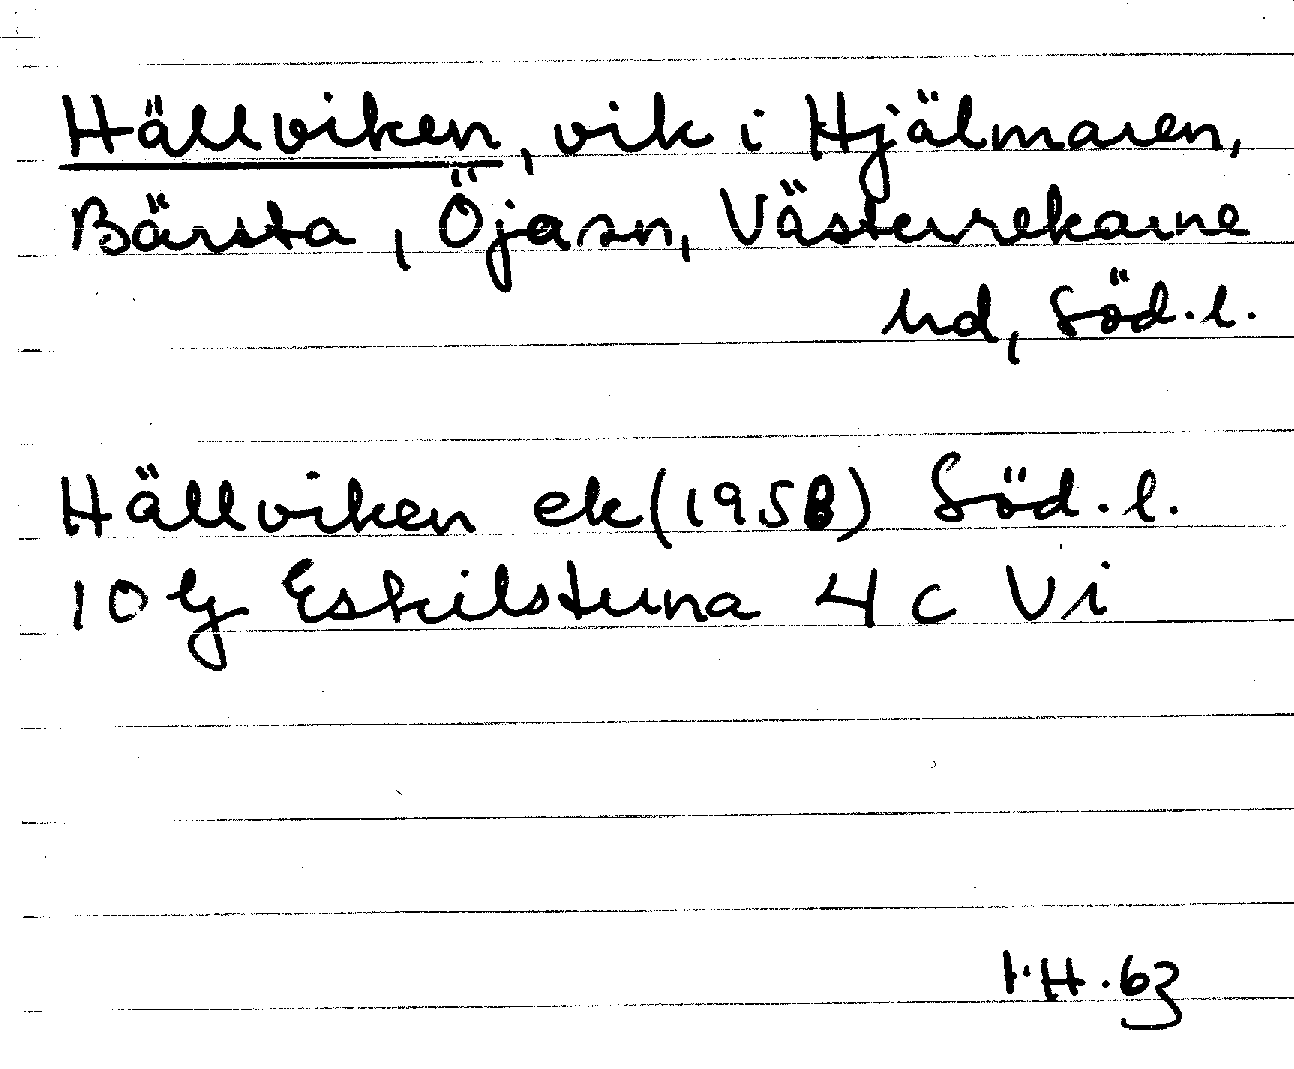 Hällviken, vik i Hjälmaren,
Bärsta, Öja sn, Västerrekarne
hd, Söd.l.
Hällviken ek (1958) Söd.l.
10 G Eskilstuna 4 c Vi
I.H.63